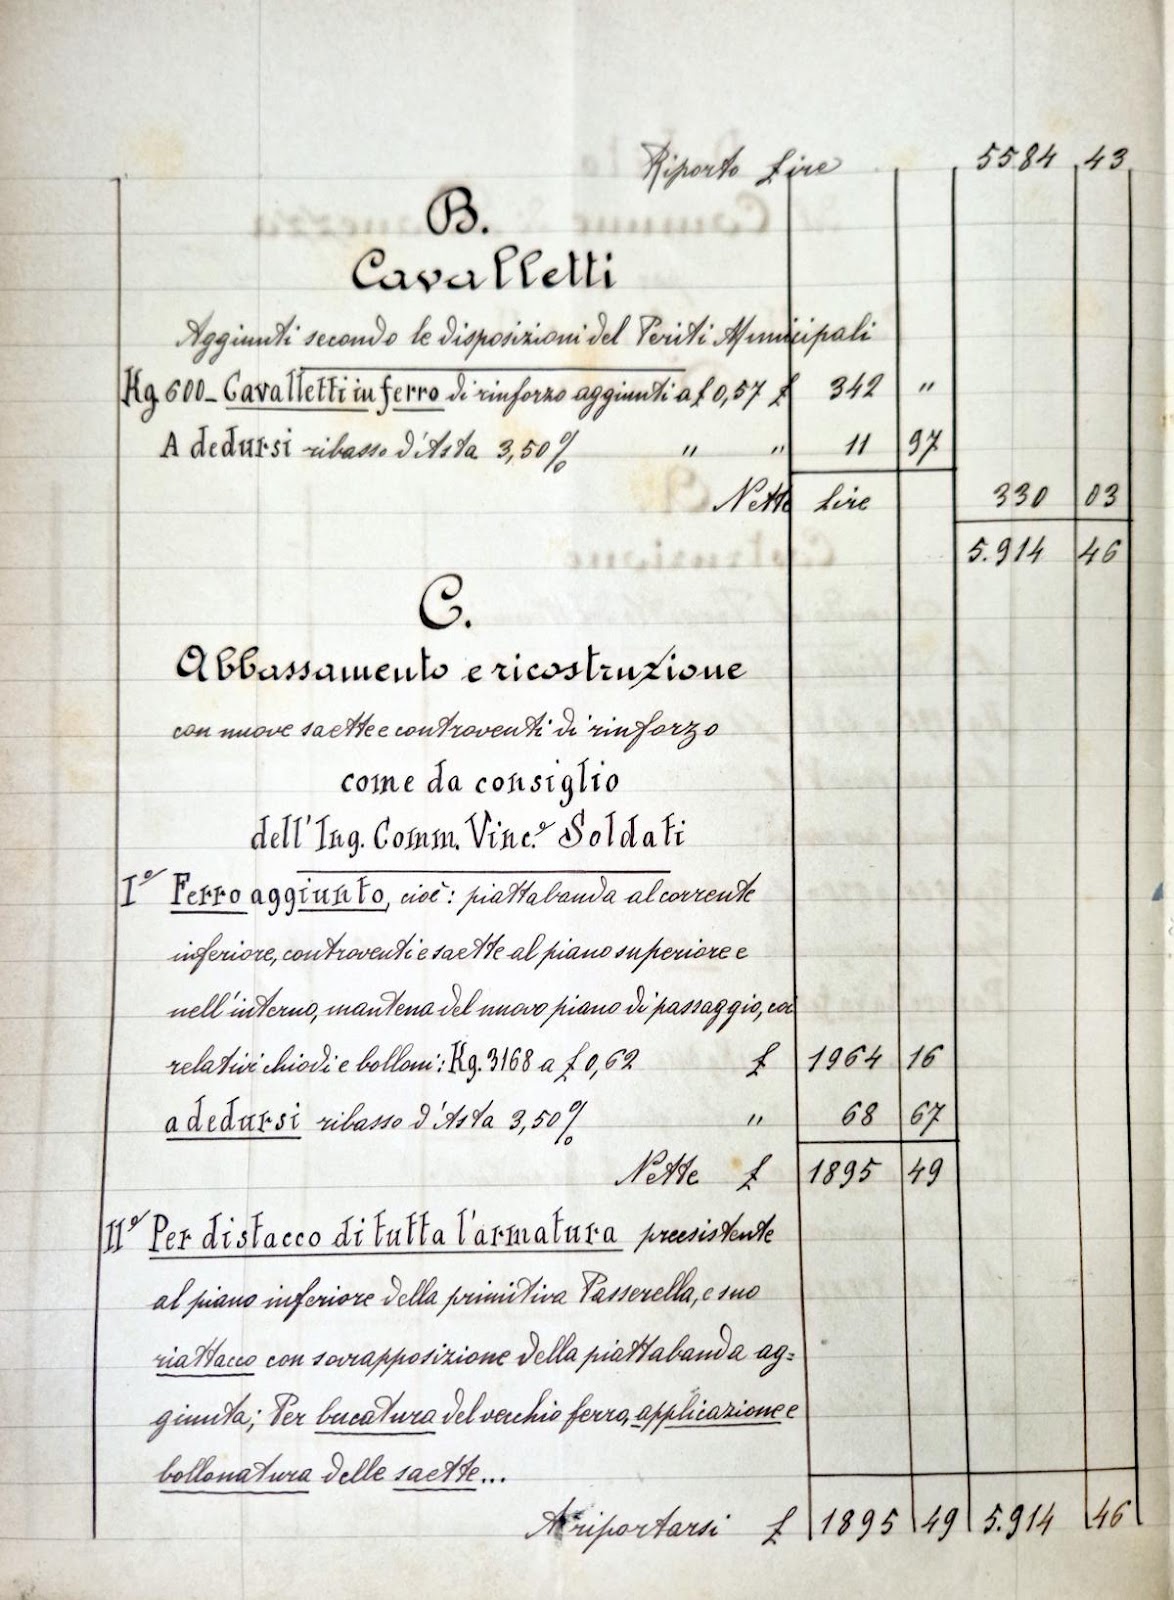 Riporto Lire 5584 43
B.
Cavalletti
Aggiunti secondo le disposizioni del Periti Municipali
Kg. 600 - Cavalletti in ferro di rinforzo aggiunti a £ 0,57 £ 342 "
A dedursi ribasso d'Asta 3,50 % " " 11 97
Nette Lire 330 03
5.914 46
C.
Abbassamento e ricostruzione
con nuove saette e controventi di rinforzo
come da consiglio
dell'Ing. Comm. Vinc.o Soldati
I° Ferro aggiunto, cioè: piattabanda al corrente
inferiore, controventi e saette al piano superiore e
nell'interno, mantena del nuovo piano di passaggio, coi
relativi chiodi e bolloni: Kg. 3168 a £ 0,62 £ 1964 16
a dedursi ribasso d'Asta 3,50 % " 68 67
Nette £ 1895 49
II° Per distacco di tutta l'armatura preesistente
al piano inferiore della primitiva Passerella, e suo
riattacco con sovrapposizione della piattabanda ag=
giunta; Per bucatura del vecchio ferro, applicazione e
bollonatura delle saette...
A riportarsi £ 1895 49 5.914 46